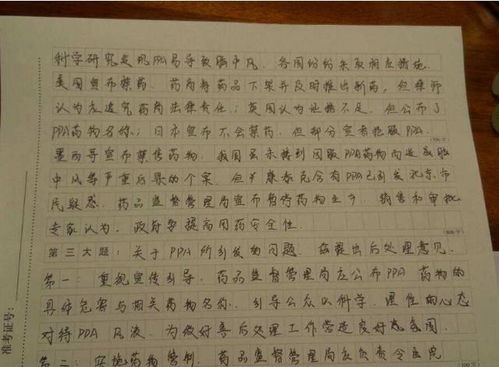 科学研究发现PPA易导致脑中风，各国纷纷采取相应措施。
美国宣布禁药，药商将药品下架并及时推出新药，但律师
认为应追究药商法律责任；英国认为证据不足，但公布了
PPA药物名称；日本宣布不会禁药，但部分宣布抵服PPA，
墨西哥宣布禁售药物。我国虽未接到因服PPA药物而造成脑
中风等严重后果的个案，但康泰克含有PPA已引发北京市
民疑惑。药品监督管理局宣布暂停药物生产、销售和审批
专家认为，政府要提高用药安全性。
第三大题：关于PPA所引发的问题，兹提出后处理意见。
第一：重视宣传引导，药品监督管理局应公布PPA药物的
具体危害与相关药物名称，引导公众以科学、理性的心态
对待PPA风波，为做好善后处理工作营造良好氛围。
第二：实施药物管制，药品监督管理局应负责令医院
准考证号：